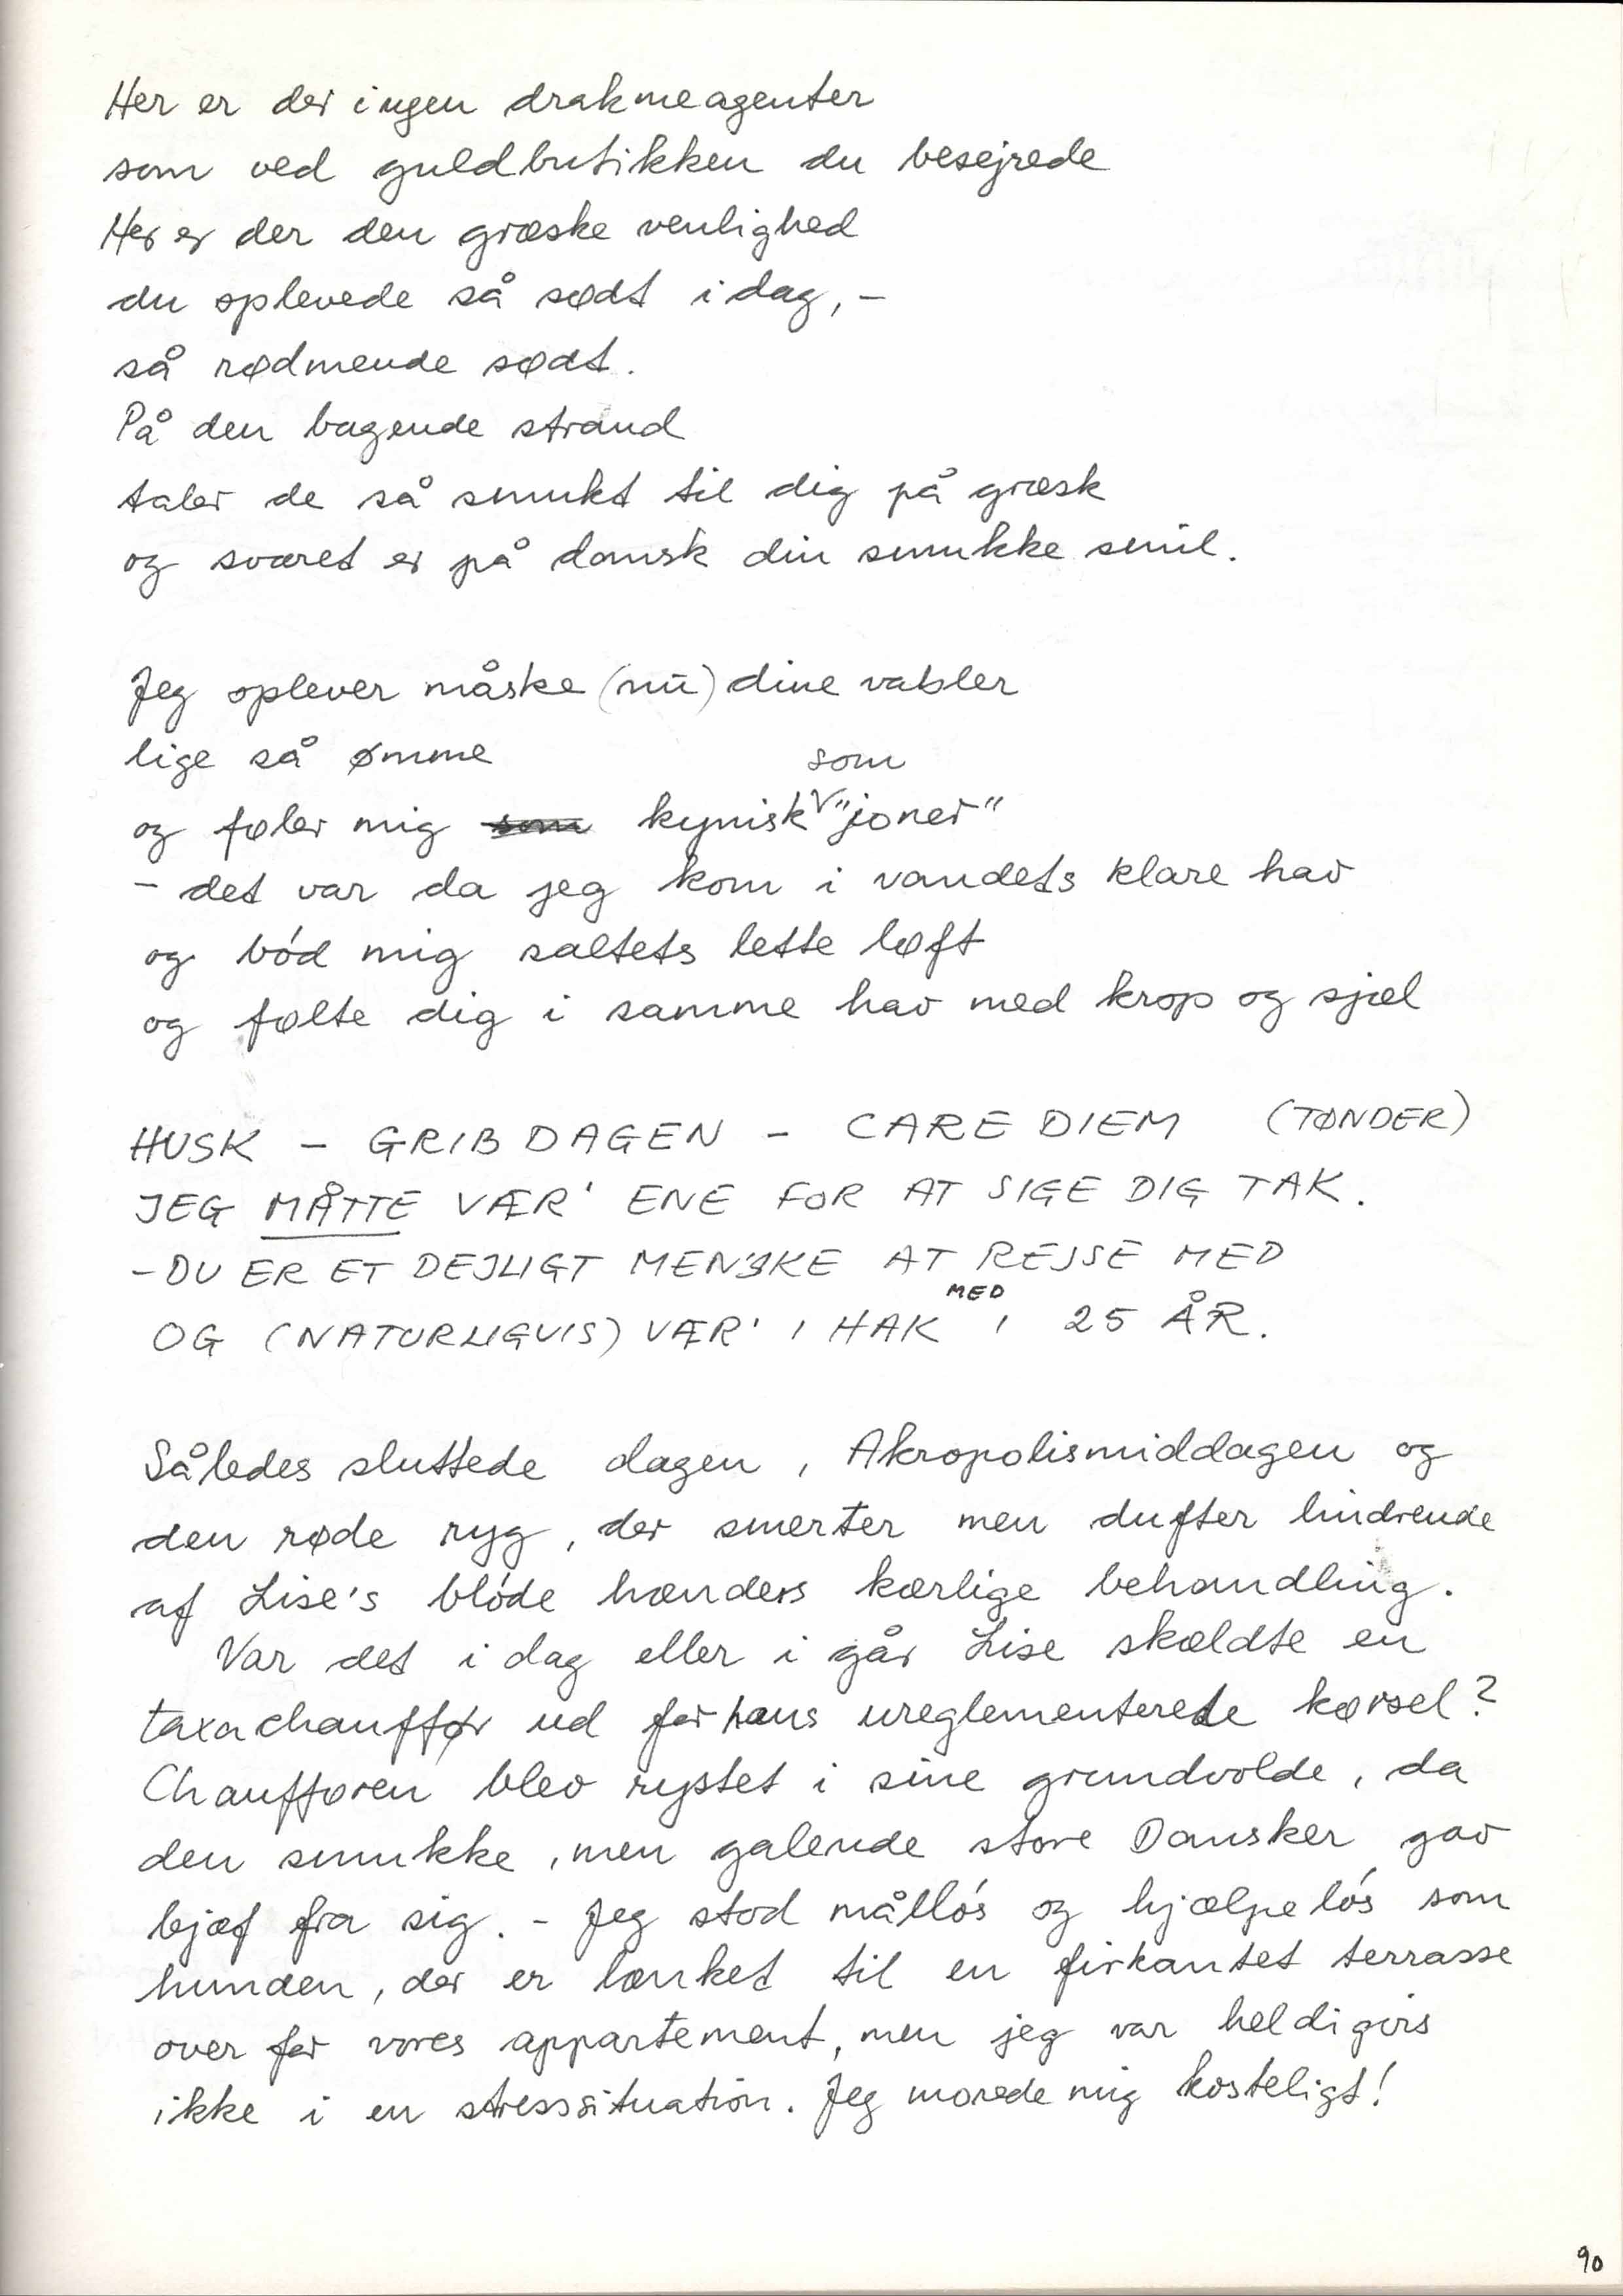 Her er der ingen drakmeagenter
som ved guldbutikken du besejrede
Her er der den græske venlighed
du oplevede så sødt i dag, -
så rødmende sødt.
På den bagende strand
taler de så smukt til dig på græsk
og svaret er på dansk din smukke smil.
Jeg oplever måske (nu) dine vabler
lige så ømme
og føler mig som kynisk som "joner"
- det var da jeg kom i vandets klare hav
og bód mig saltets lette løft
og følte dig i samme hav med krop og sjæl
HUSK - GRIB DAGEN - CARE DIEM (TØNDER)
JEG MÅTTE VÆR' ENE FOR AT SIGE DIG TAK.
- DU ER ET DEJLIGT MENSKE AT REJSE MED
OG (NATURLIGVIS) VÆR' I HAK MED I 25 ÅR.
Således sluttede dagen, Akropolismiddagen og
den røde ryg, der smerter men dufter lindrende
af Lise's blóde hænders kærlige behandling.
Var det i dag eller i går Lise skældte en
taxachauffør ud for hans ureglementerede kørsel?
Chaufføren blev rystet i sine grundvolde, da
den smukke, men galende store Dansker gav
bjæf fra sig. - Jeg stod mållós og hjælpelós som
hunden, der er lænket til en firkantet terrasse
over for vores appartement, men jeg var heldigvis
ikke i en stresssituation. Jeg morede mig kosteligt!
90